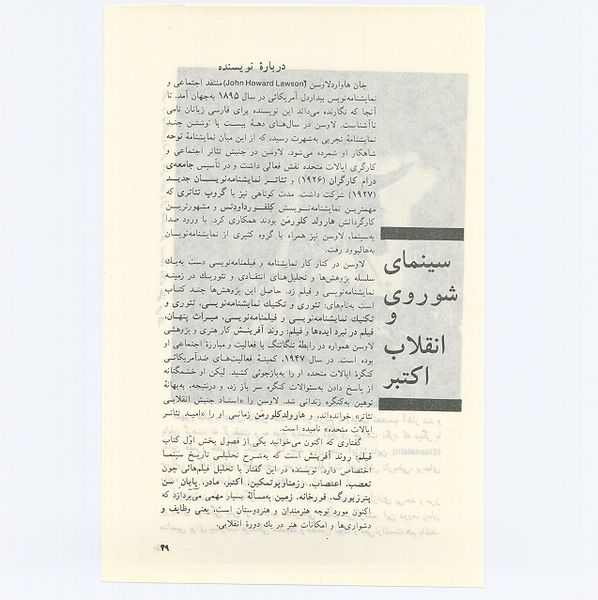 دربارهٔ نویسنده
جان هاواردلاوسن (John Howard Lawson) منتقد اجتماعی و
نمایشنامه‌نویس بیداردل آمریکائی در سال ۱۸۹۵ به‌جهان آمد. تا
آنجا که نگارنده می‌داند این نویسنده برای فارسی زبانان نامی
ناآشناست. لاوسن در سال‌های دههٔ بیست با نوشتن چند
نمایشنامهٔ تجربی به‌شهرت رسید، که از این میان نمایشنامهٔ نوحه
شاهکار او شمرده می‌شود. لاوسن در جنبش تئاتر اجتماعی و
کارگری ایالات متحده نقش فعالی داشت و در تأسیس جامعه‌ی
درام کارگران (۱۹۲۶) و تئاتر نمایشنامه‌نویسان جدید
(۱۹۲۷) شرکت داشت. مدت کوتاهی نیز با گروپ تئاتری که
مهمترین نمایشنامه‌نویسش کلیفورداودتس و مشهورترین
کارگردانش هارولد کلورمن بودند همکاری کرد. با ورود صدا
به‌سینما، لاوسن نیز همراه با گروه کثیری از نمایشنامه‌نویسان
به‌هالیوود رفت.
لاوسن در کنار کار نمایشنامه و فیلمنامه‌نویسی دست به‌یك
سلسله پژوهش‌ها و تحلیل‌های انتقادی و تئوریك در زمینه
نمایشنامه‌نویسی و فیلم زد. حاصل این پژوهش‌ها چند کتاب
است به‌نام‌های: تئوری و تکنیك نمایشنامه‌نویسی، تئوری و
تکنیك نمایشنامه‌نویسی و فیلمنامه‌نویسی، میراث پنهان،
فیلم در نبرد ایده‌ها و فیلم: روند آفرینش کار هنری و پژوهشی
لاوسن همواره در رابطهٔ تنگاتنگ با فعالیت و مبارزهٔ اجتماعی او
بوده است. در سال ۱۹۴۷، کمیتهٔ فعالیت‌های ضدآمریکائی
کنگرهٔ ایالات متحده او را به‌بازجوئی کشید. لیکن او خشمگنانه
از پاسخ دادن به‌سئوالات کنگره سر باز زد، و درنتیجه، به‌بهانهٔ
توهین به‌کنگره زندانی شد. لاوسن را «استاد جنبش انقلابی
تئاتر» خوانده‌اند، و هارولدکلورمن زمانی او را «امید تئاتر
ایالات متحده» نامیده است.
گفتاری که اکنون می‌خوانید یکی از فصول بخش اوّل کتاب
فیلم: روند آفرینش است که به‌شرح تحلیلی تاریخ سینما
اختصاص دارد. نویسنده در این گفتار با تحلیل فیلم‌هائی چون
تعصب، اعتصاب، رزمناوپوتمکین، اکتبر، مادر، پایان سن
پترزبورگ، قورخانه، زمین به‌مسألهٔ بسیار مهمی می‌پردازد که
اکنون مورد توجه هنرمندان و هنردوستان است، یعنی وظایف و
دشواری‌ها و امکانات هنر در یك دورهٔ انقلابی.
سینمای
شوروی
و
انقلاب
اکتبر
۴۹